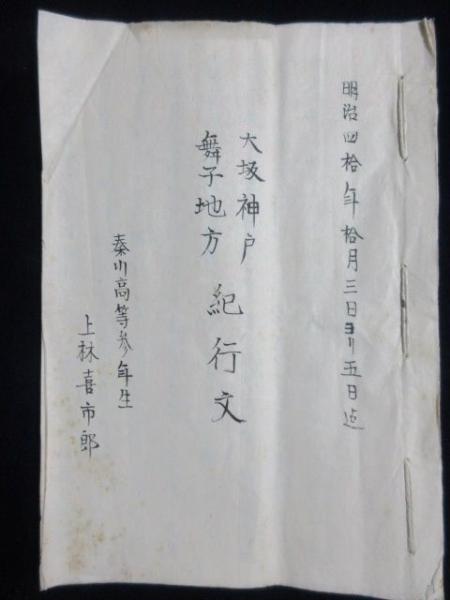 明治四拾年拾月三日ヨリ五日迄
大坂神戸
舞子地方
紀行文
秦川高等参年生
上林喜市郎